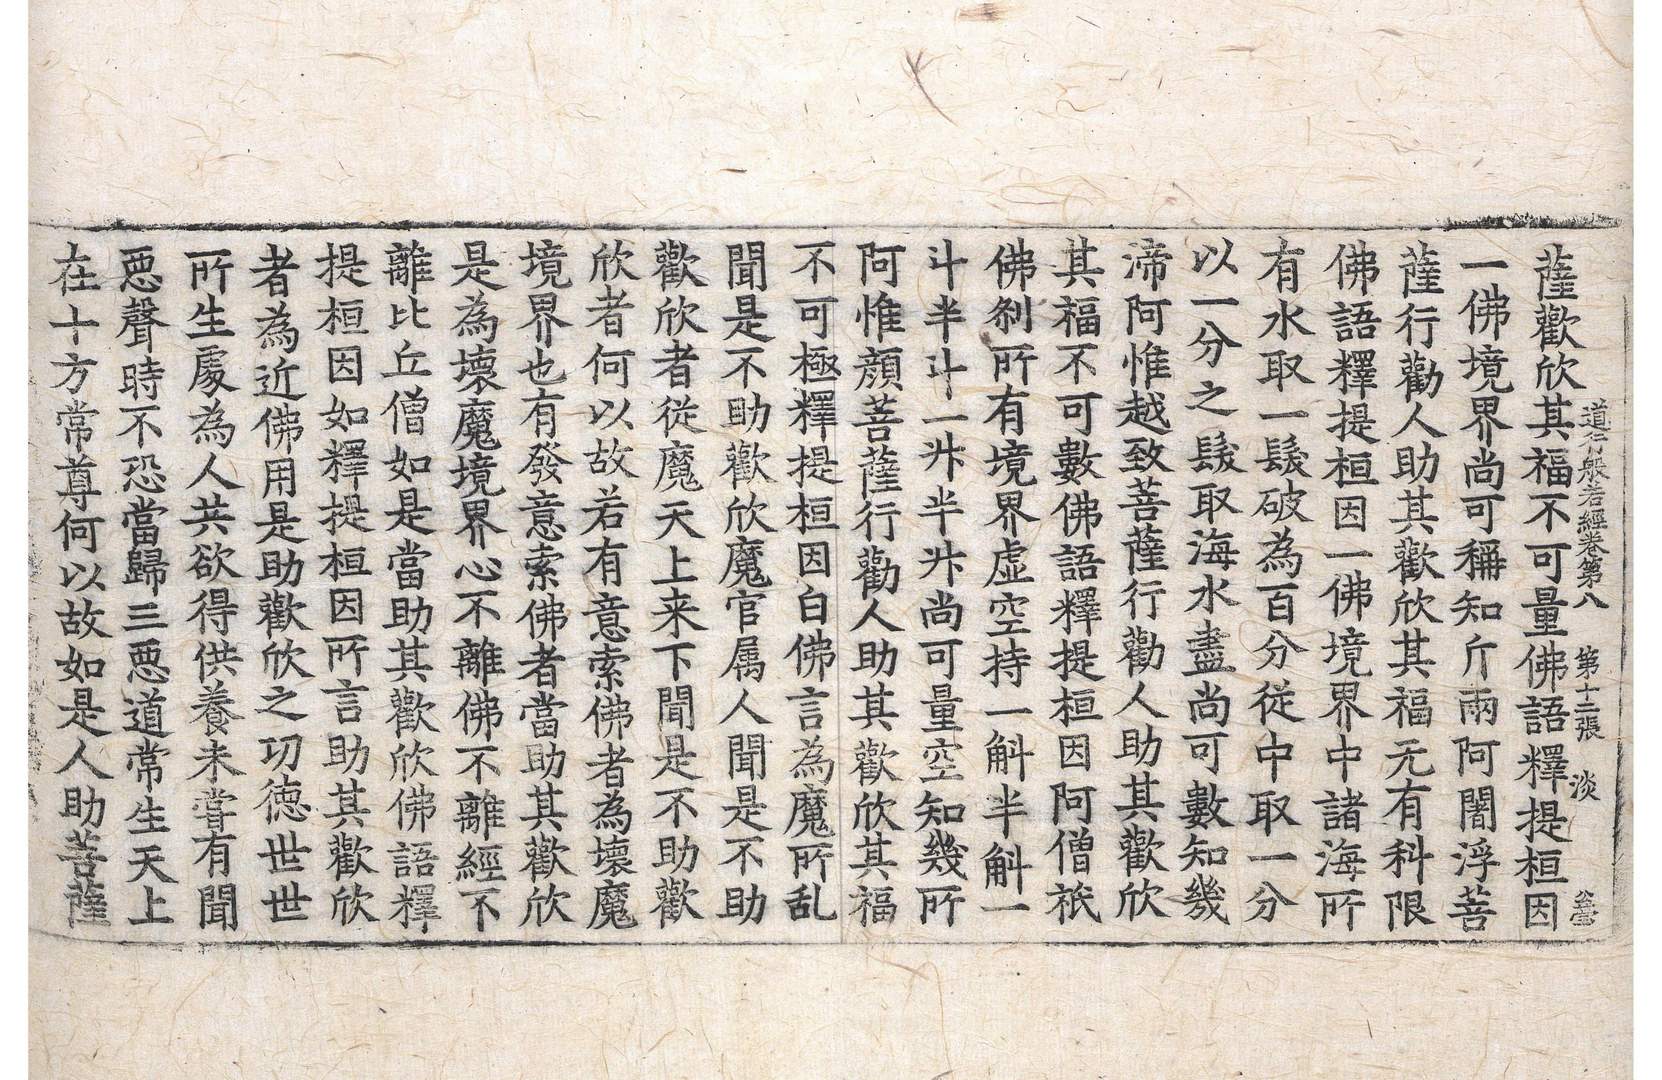 道行般若經卷第八　第十二張　淡
薩歡欣其福不可量佛語釋提桓因
一佛境界尚可稱知斤兩阿闍浮菩
薩行勸人助其歡欣其福无有科限
佛語釋提桓因一佛境界中諸海所
有水取一髮破為百分從中取一分
以一分之髮取海水盡尚可數知幾
渧阿惟越致菩薩行勸人助其歡欣
其福不可數佛語釋提桓因阿僧祇
佛剎所有境界虛空持一斛半斛一
斗半斗一升半升尚可量空知幾所
阿惟顏菩薩行勸人助其歡欣其福
不可極釋提桓因白佛言為魔所乱
聞是不助歡欣魔官属人聞是不助
歡欣者從魔天上来下聞是不助歡
欣者何以故若有意索佛者為壞魔
境界也有發意索佛者當助其歡欣
是為壞魔境界心不離佛不離經不
離比丘僧如是當助其歡欣佛語釋
提桓因如釋提桓因所言助其歡欣
者為近佛用是助歡欣之功德世世
所生處為人共欲得供養未甞有聞
惡聲時不恐當歸三惡道常生天上
在十方常尊何以故如是人助菩薩